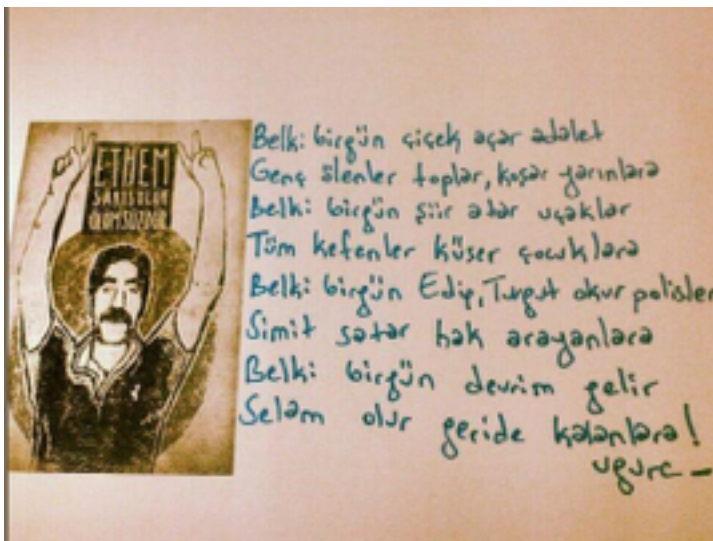 ETHEM
SARISÜLÜK
ÖLÜMSÜZDÜR
Belki birgün çiçek açar adalet
Genç ölenler toplar, koşar yarınlara
Belki birgün şiir atar uçaklar
Tüm kefenler küser çocuklara
Belki birgün Edip, Turgut okur polisler
Simit satar hak arayanlara
Belki birgün devrim gelir
Selam olur geride kalanlara!
ugurc